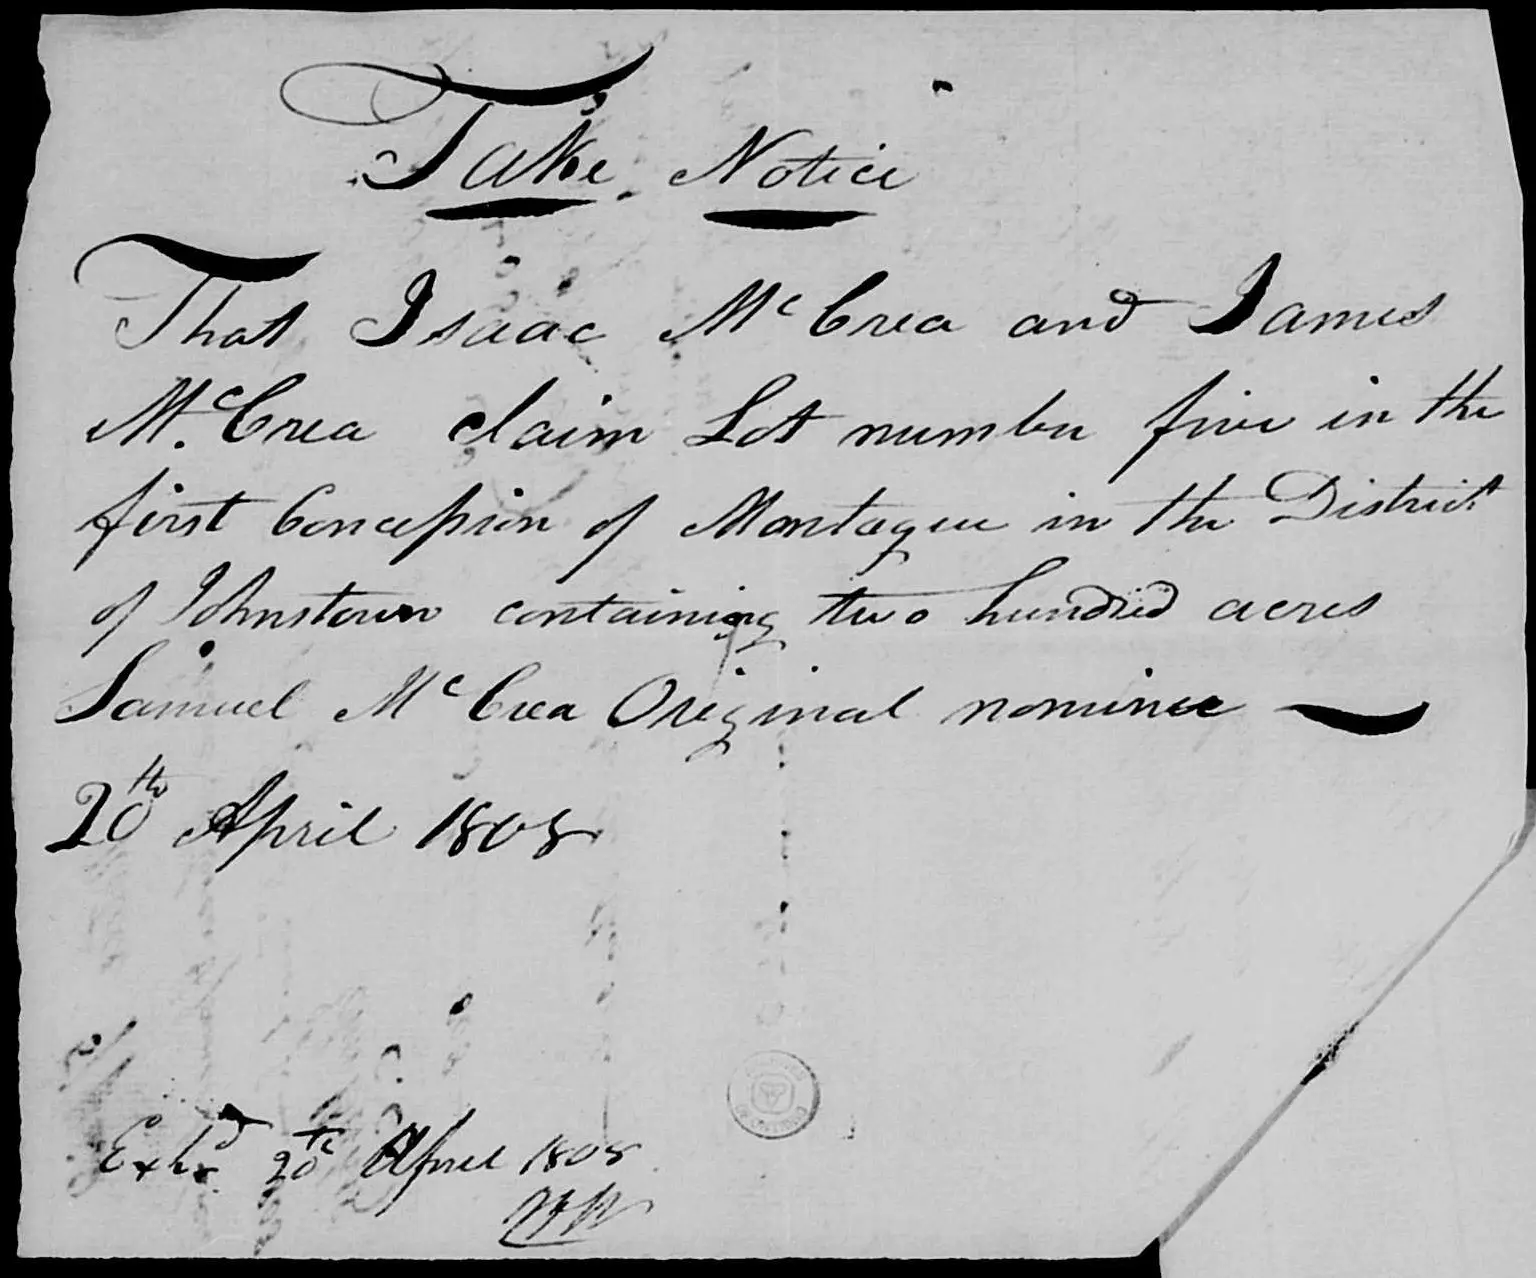 Take Notice
That Isaac McCrea and James
McCrea claim Lot number five in the
first Concession of Montague in the District
of Johnstown containing two hundred acres
Samuel McCrea Original nominee
20th April 1808
Exhd 20th April 1808